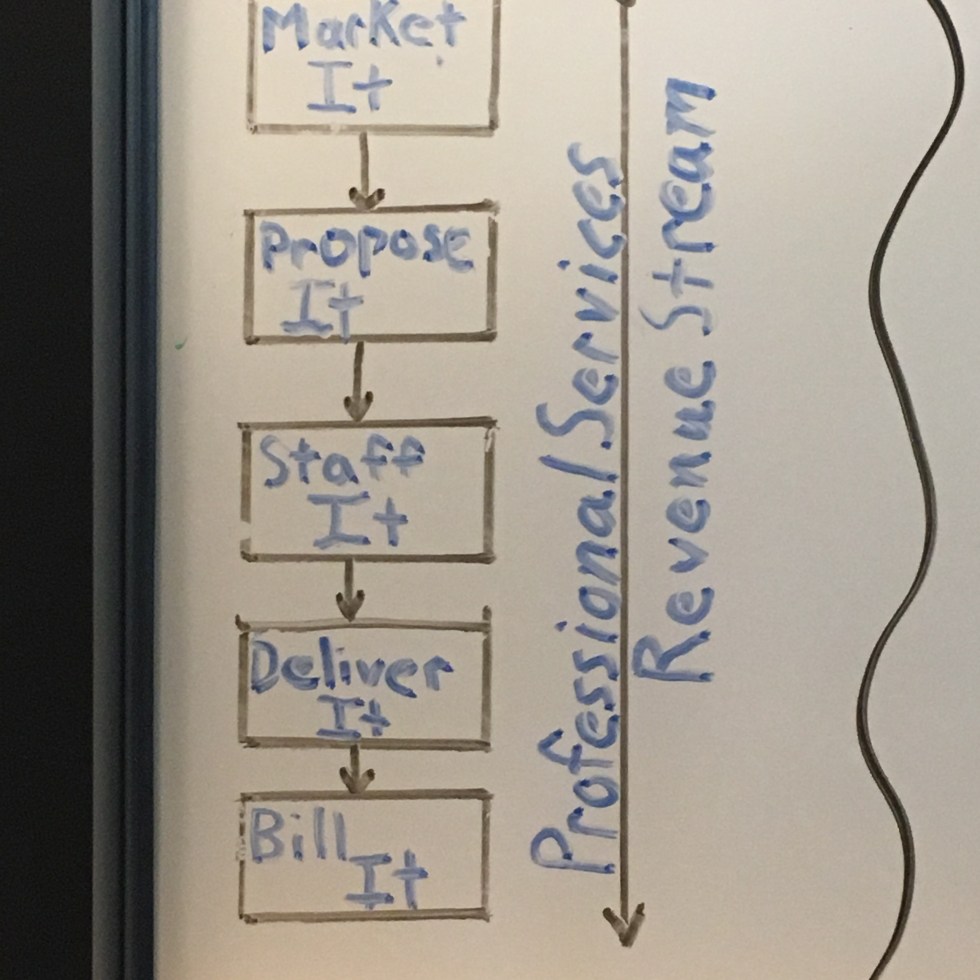 Market
It
Propose
It
Staff
It
Deliver
It
Bill
It
Professional Services
Revenue Stream